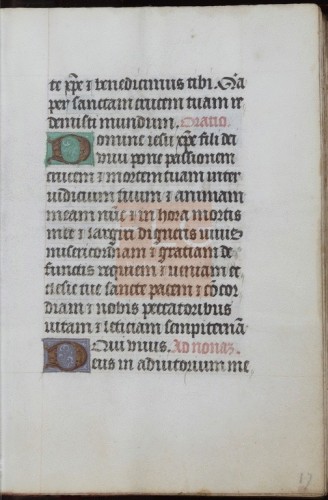 te xp̄e ⁊ benedicimus tibi. Q̄a
per sanctam crucem tuam re
demisti mundum. Oratio.
Domine iesu xp̄e fili dei
vivi pone passionem
crucem ⁊ mortem tuam inter
iudicium tuum ⁊ animam
meam nūc ⁊ in hora mortis
mee ⁊ largiri digneris vivis
misericordiam ⁊ gratiam de
functis requiem ⁊ veniam ec
clesie tue sancte pacem ⁊ cōcor
diam ⁊ nobis peccatoribus
vitam ⁊ leticiam sempiternā
Qui vivis. Ad nonaz.
Deus in adiutorium me